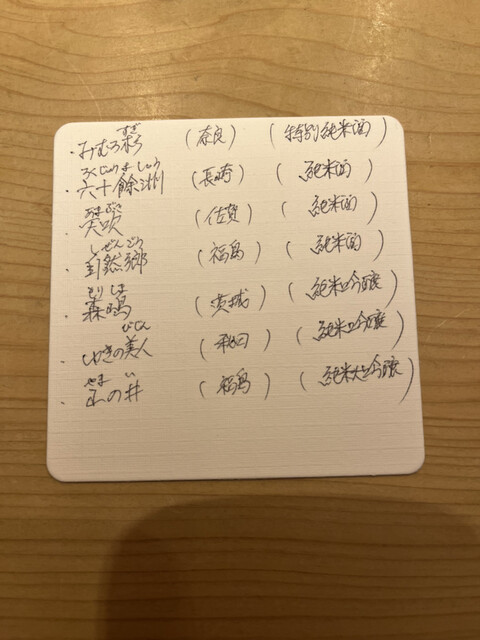 すぎ
・みむろ杉 (奈良) (特別純米酒)
ろくじゅうよしゅう
・六十餘洲 (長崎) (純米酒)
あまぶき
・天吹 (佐賀) (純米酒)
しぜんごう
・自然郷 (福島) (純米酒)
もりしま
・森嶋 (茨城) (純米吟醸)
びじん
・ゆきの美人 (秋田) (純米吟醸)
やま い
・山の井 (福島) (純米大吟醸)